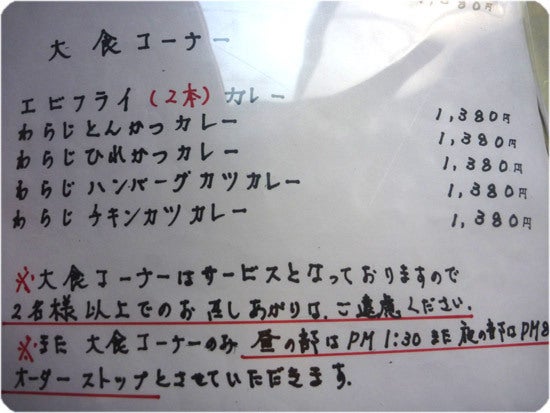 1,380円
大食コーナー
エビフライ(2本)カレー 1,380円
わらじとんかつカレー 1,380円
わらじひれかつカレー 1,380円
わらじハンバーグカツカレー 1,380円
わらじチキンカツカレー 1,380円
※大食コーナーはサービスとなっておりますので
2名様以上でのお召しあがりは、ご遠慮ください.
※また大食コーナーのみ昼の部はPM1:30まで夜の部はPM8
オーダーストップとさせていただきます.